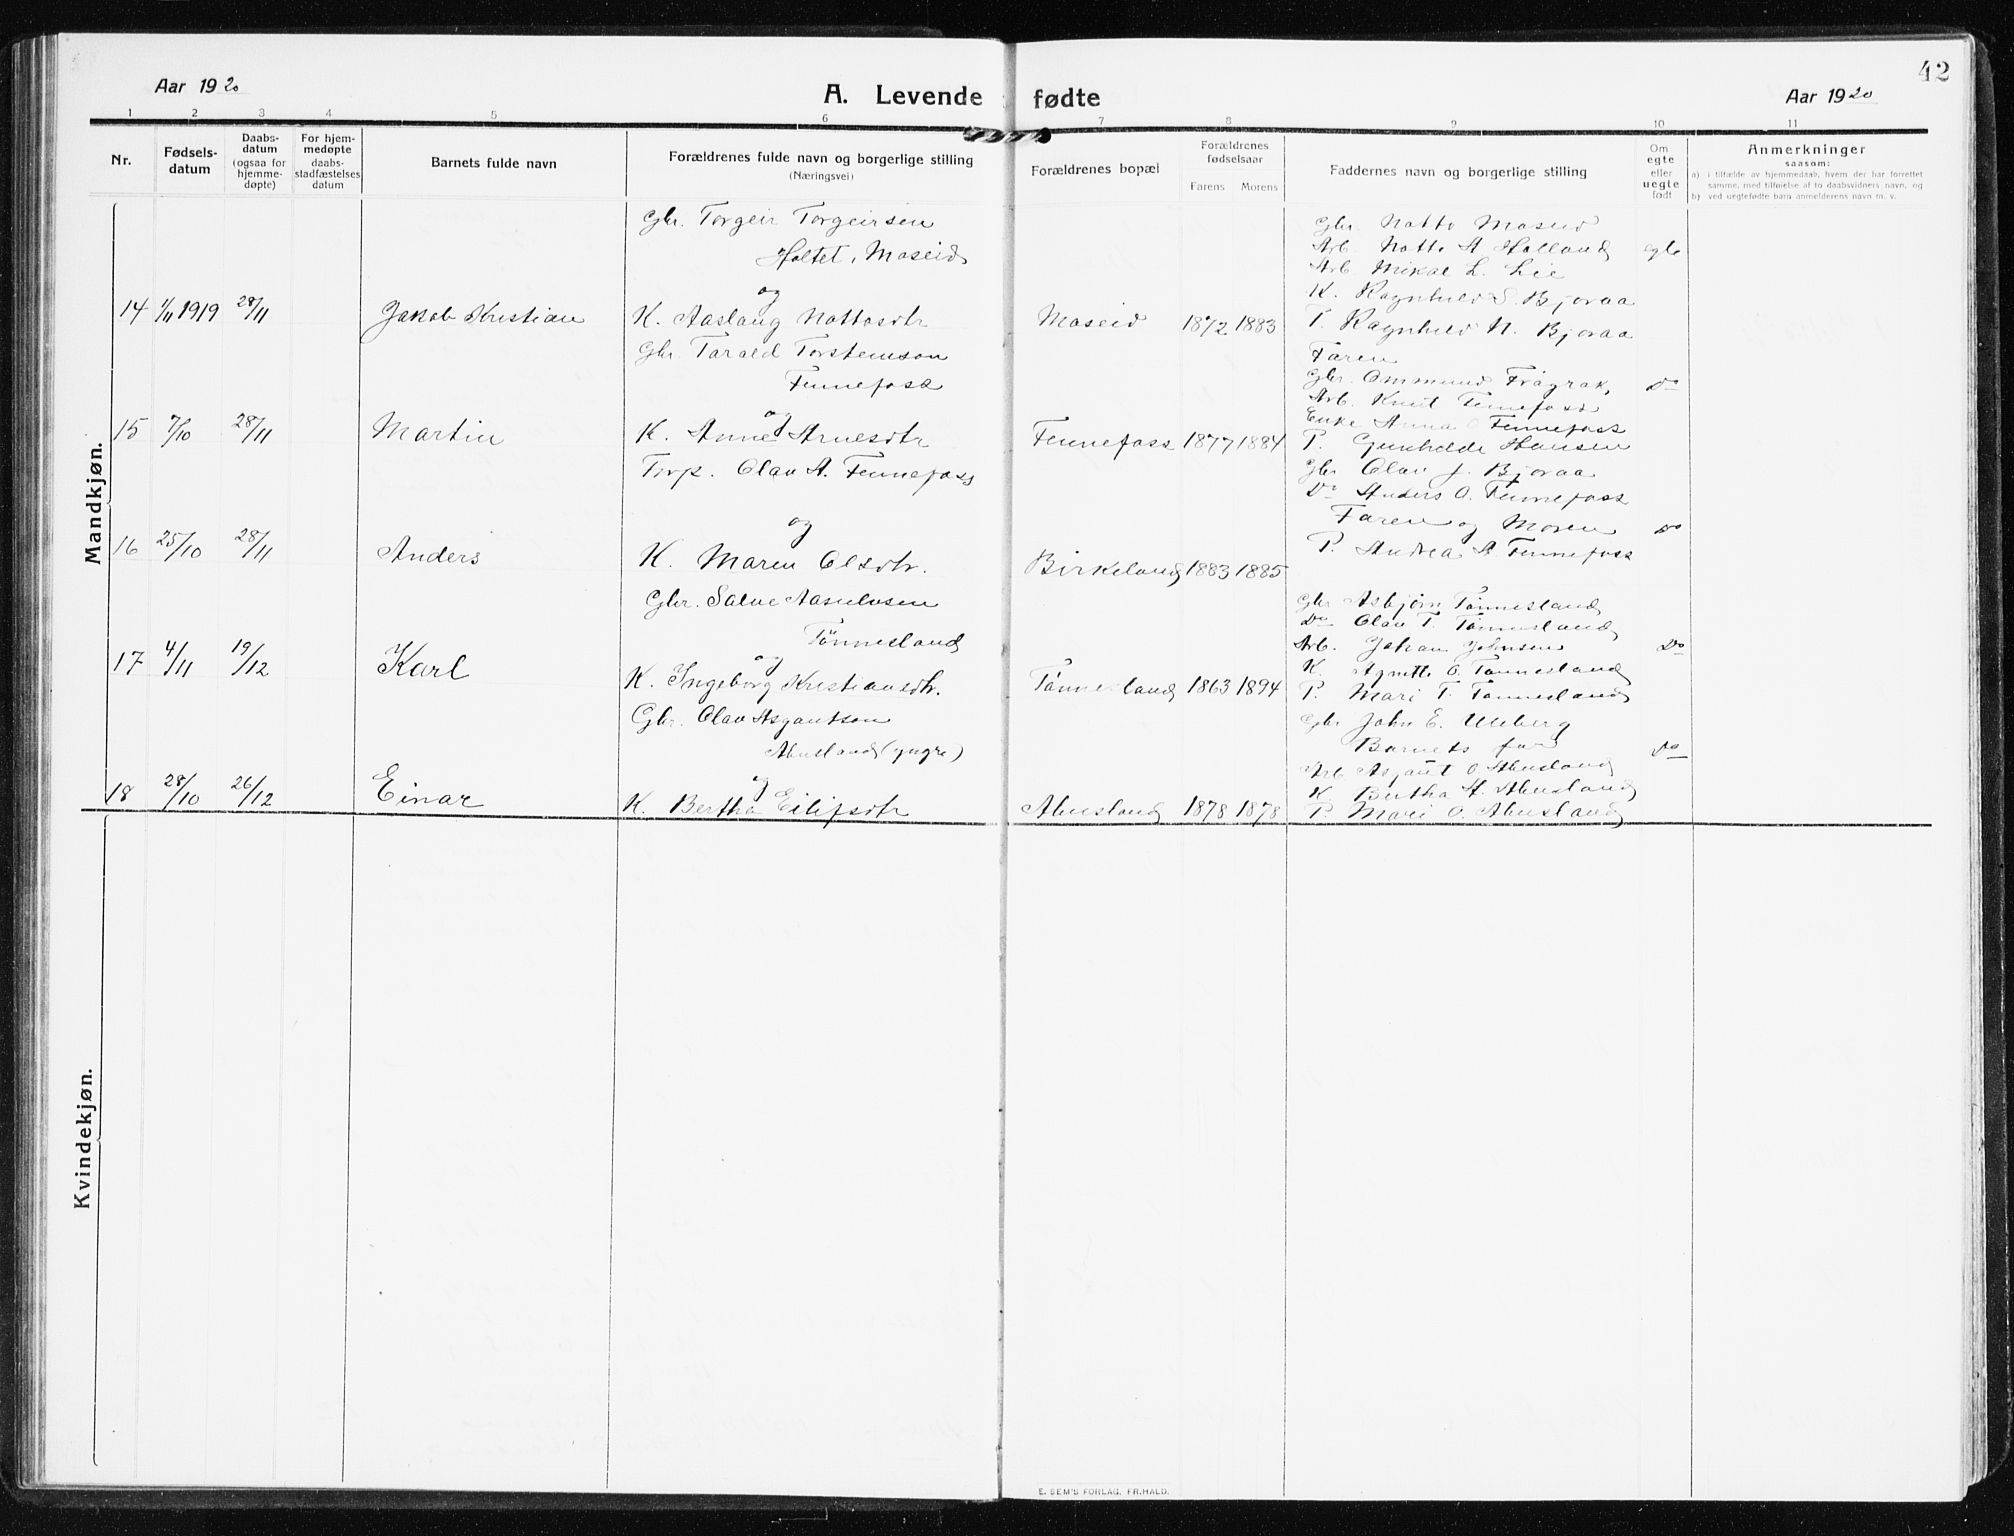 42
Aar 1920
A. Levende fødte
Aar 1920
1 2 3 4 5 6 7 8 9 10 11
Nr.
Fødsels-
datum
Daabs-
datum
(ogsaa for
hjemme-
døpte)
For hjem-
medøpte
daabs-
stadfæstelses
datum
Barnets fulde navn
Forældrenes fulde navn og borgerlige stilling
(Næringsvei)
Forældrenes bopæl
Forældrenes
fødselsaar
Farens Morens
Faddernes navn og borgerlige stilling
Om
egte
eller
uegte
født
Anmerkninger
saasom:
a) i tilfælde av hjemmedaab, hvem der har forrettet
samme, med tilføielse af to daabsvidners navn, og
b) ved uegtefødte barn anmelderens navn m. v.
Mandkjøn.
14 1/11 1919 28/11 Jakob Kristian
Gbr. Torgeir Torgeirsen
Holtet, Moseid
og
K. Aaslaug Nottosdtr
Moseid 1872 1883
Gbr. Notto Moseid
Arb. Notto A Holland egte
Arb Mikal L. Lie
K. Ragnhild S. Bjoraa
P. Ragnhild N. Bjoraa
15 7/10 28/11 Martin
Gbr. Tarald Torsteinson
Fennefoss
og
K. Anne Arnesdtr
Fennefoss 1877 1884
Faren
Gbr. Ommund Frågrak, Do
Arb. Knut Fennefoss
Enke Anna O Fennefoss
P. Gunhilde Hansen
16 25/10 28/11 Anders
Torp. Olav A. Fennefoss
og
K. Maren Olsdtr.
Birkeland 1883 1885
Gbr Olav J. Bjoraa
Do Anders O. Fennefoss
Faren og Moren Do
P. Andrea A Fennefoss
17 4/11 19/12 Karl
Gbr. Salve Aasulvsen
Tønnesland
og
K. Ingeborg Kristiansdtr.
Tønnesland 1863 1894
Gbr Asbjørn Tønnesland
Do Olav T. Tønnesland
Arb. Johan Johnsen Do
K. Agnette O. Tønnesland
P. Mari T. Tønnesland
18 28/10 26/12 Einar
Gbr. Olav Asgautson
Abusland (yngre)
og
K. Bertha Eilifsdtr
Abusland 1878 1878
Gbr John E. Uleberg
Barnets far Do
Arb Asgaut O. Abusland
K Bertha A. Abusland
P. Mari O. Abusland
Kvindekjøn.
E. SEM'S FORLAG, FR.HALD.